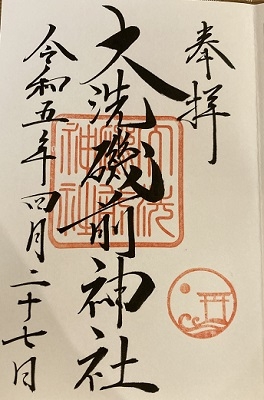 奉拝
大洗磯前神社
令和五年四月二十七日
大洗磯前神社